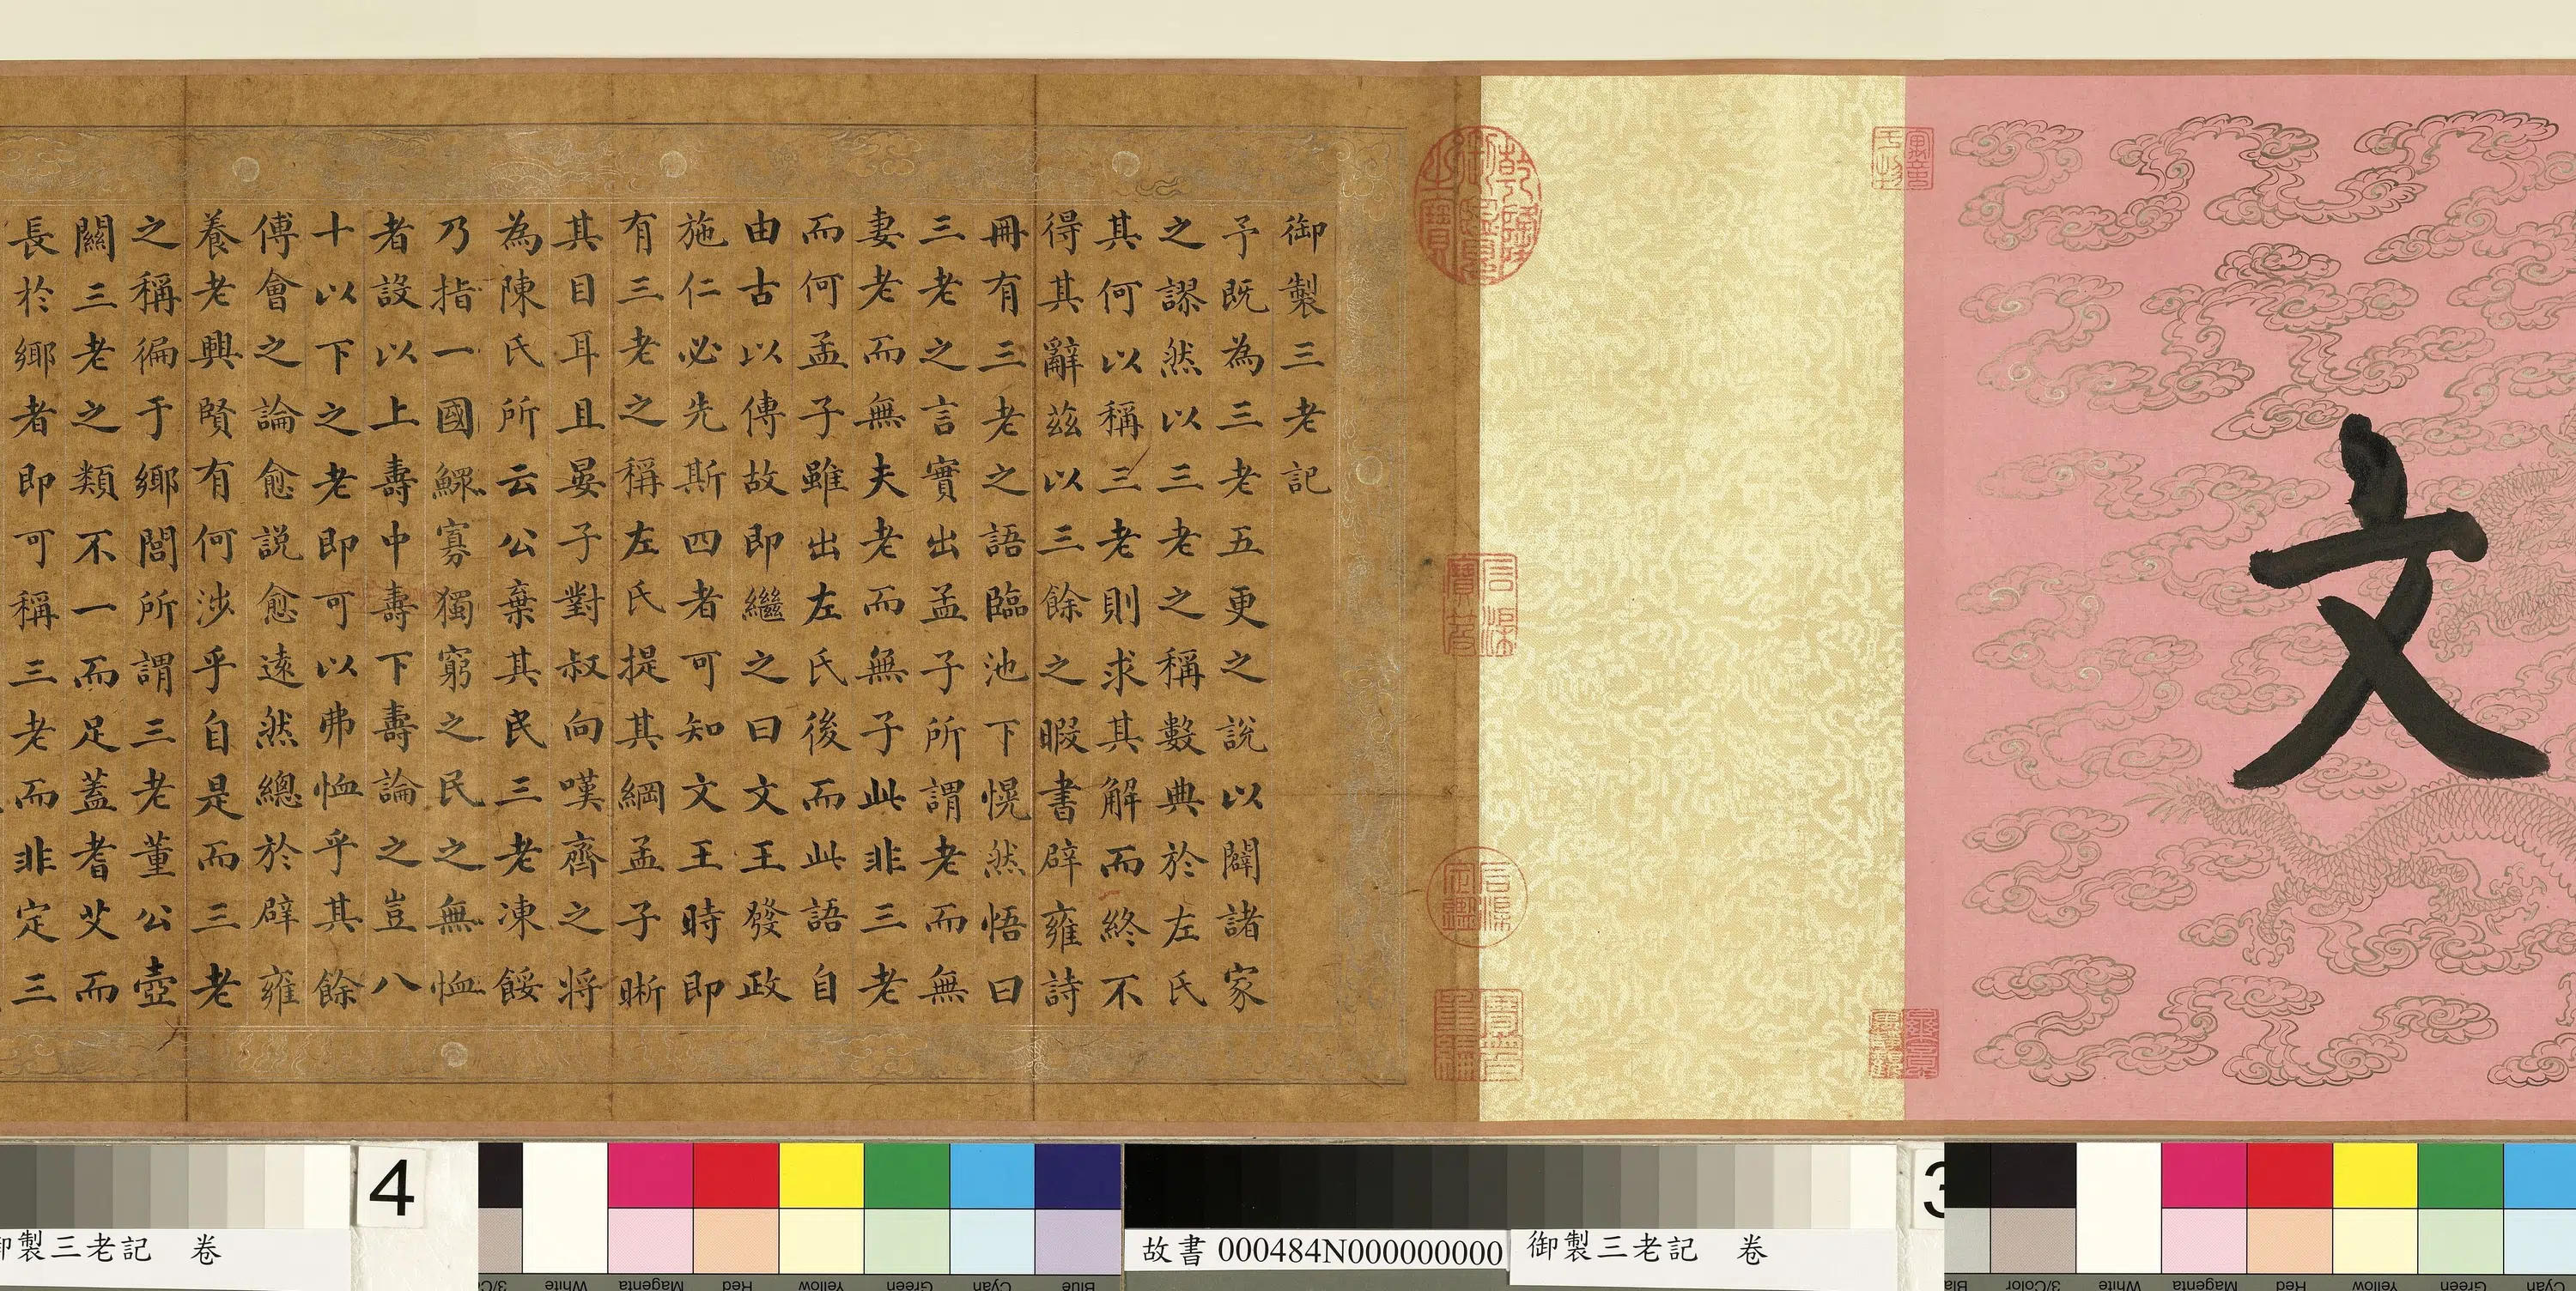 文
御製三老記
予既為三老五更之說以闢諸家
之謬然以三老之稱數典於左氏
其何以稱三老則求其解而終不
得其辭茲以三餘之暇書辟雍詩
冊有三老之語臨池下愰然悟曰
三老之言實出孟子所謂老而無
妻老而無夫老而無子此非三老
而何孟子雖出左氏後而此語自
由古以傳故即繼之曰文王發政
施仁必先斯四者可知文王時即
有三老之稱左氏提其綱孟子晣
其目耳且晏子對叔向嘆齊之將
為陳氏所云公棄其民三老凍餒
乃指一國鰥寡獨窮之民之無恤
者設以上壽中壽下壽論之豈八
十以下之老即可以弗恤乎其餘
傅會之論愈說愈遠然總於辟雍
養老興賢有何涉乎自是而三老
之稱徧于鄉閭所謂三老董公壺
關三老之類不一而足蓋耆艾而
長於鄉者即可稱三老而非定三
乾隆御覽之寶
石渠寶笈
石渠定鑑
寶笈重編
4
3
御製三老記 卷
故書 000484N000000000
御製三老記 卷
3/Color
White
Magenta
Red
Yellow
Green
Cyan
Blue
3/Color
White
Magenta
Red
Yellow
Green
Cyan